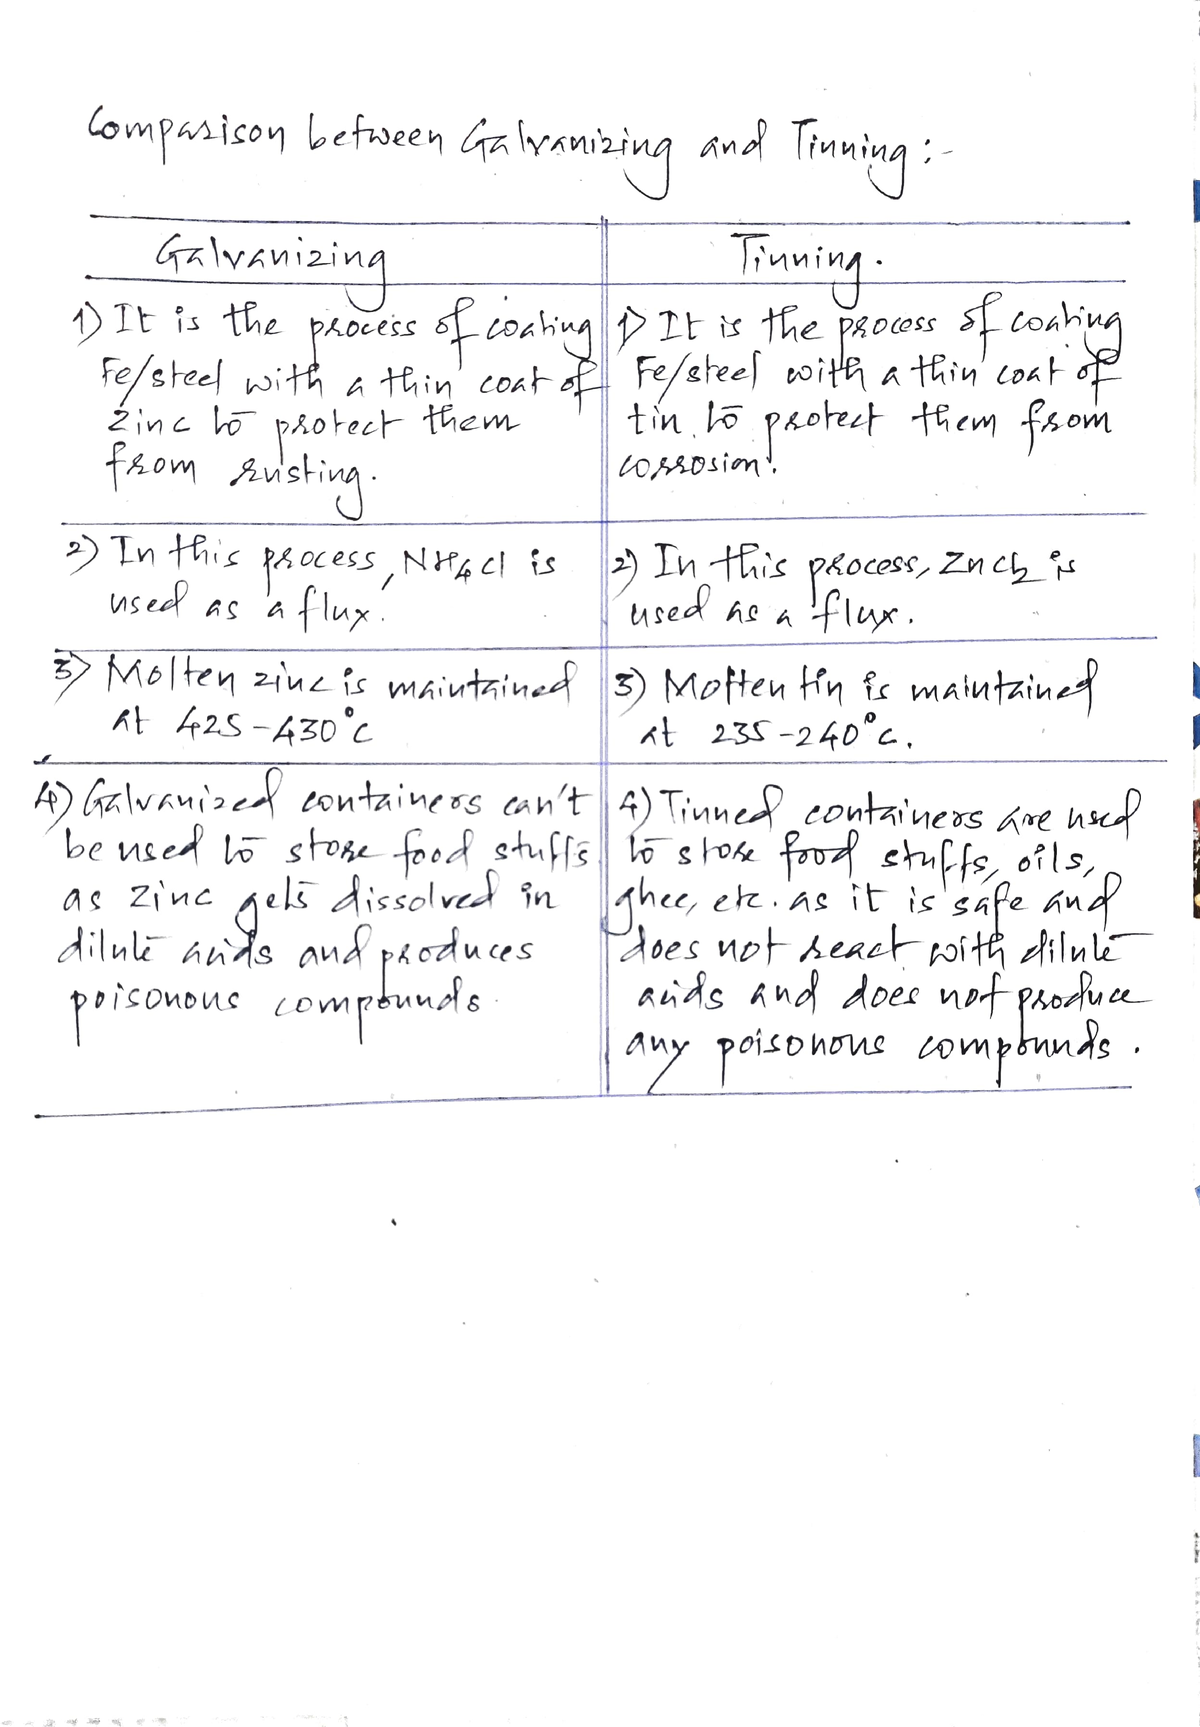 Comparison between Galvanizing and Tinning :-
Galvanizing
Tinning.
1) It is the process of coating
Fe/steel with a thin coat of
Zinc to protect them
from rusting.
1) It is the process of coating
Fe/steel with a thin coat of
tin to protect them from
corrosion.
2) In this process, NH4Cl is
used as a flux.
2) In this process, ZnCl2 is
used as a flux.
3) Molten zinc is maintained
at 425-430°C
3) Molten tin is maintained
at 235-240°C.
4) Galvanized containers can't
be used to store food stuffs
as zinc gets dissolved in
dilute acids and produces
poisonous compounds.
4) Tinned containers are used
to store food stuffs, oils,
ghee, etc. as it is safe and
does not react with dilute
acids and does not produce
any poisonous compounds.